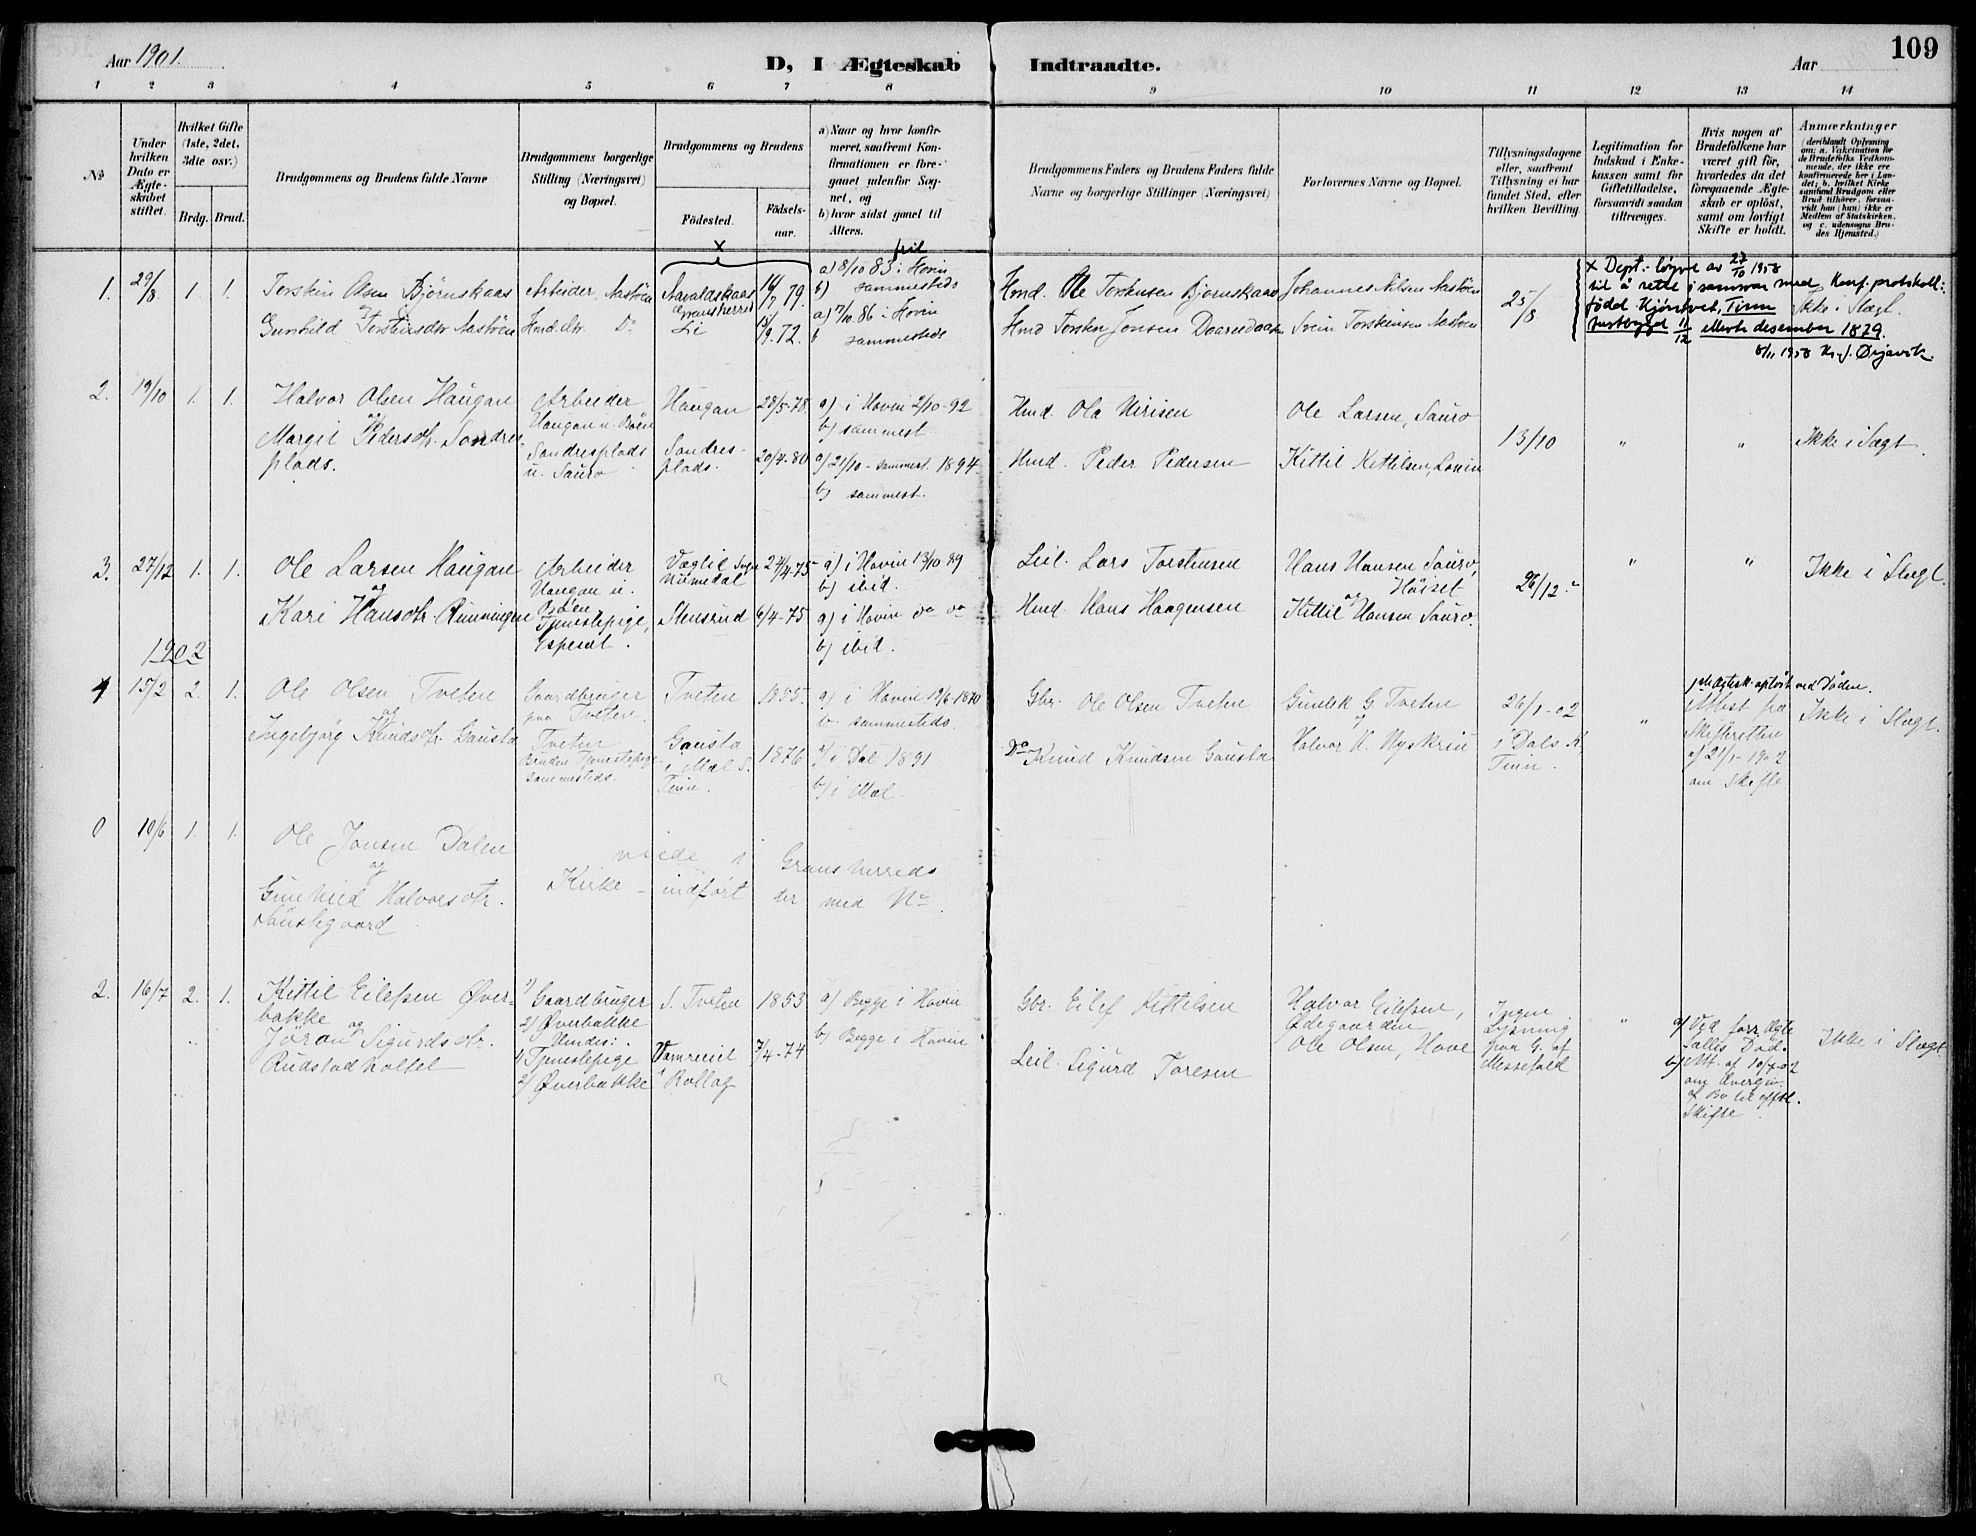 Aar 1901. D, I Ægteskab Indtraadte. Aar 109
1 2 3 4 5 6 7 8 9 10 11 12 13 14
No
Under hvilken Dato er Ægteskabet stiftet.
Hvilket Gifte (1ste, 2det, 3die osv.)
Brdg. Brud.
Brudgommens og Brudens fulde Navne
Brudgommens borgerlige Stilling (Næringsvei) og Bopæl.
Brudgommens og Brudens
Födested. Födselsaar.
a) Naar og hvor konfirmeret, saafremt Konfirmationen er foregaaet udenfor Sognet, og
b) hvor sidst gaaet til Alters.
Brudgommens Faders og Brudens Faders fulde Navne og borgerlige Stillinger (Næringsvei)
Forlovernes Navne og Bopæl.
Tillysningsdagene eller, saafremt Tillysning ei har fundet Sted, efter hvilken Bevilling.
Legitimation for Indskud i Enkekassen samt for Giftetilladelse, forsaavidt saadan tiltrænges.
Hvis nogen af Brudefolkene har været gift för, hvorledes da det foregaaende Ægteskab er oplöst, samt om lovligt Skifte er holdt.
Anmærkninger
(deriblandt Oplysning om: a. Vakcination for de Brudefolks Vedkommende, der ikke ere konfirmerede her i Landet; b. hvilket Kirkesamfund Brudgom eller Brud tilhörer, forsaavidt han (hun) ikke er Medlem af Statskirken, og c. udensogns Brudes Hjemsted.)
x feil
1. 29/8 1. 1. Torstein Olsen Bjørnskaas Arbeider, Aastöen Aavaldskaas Gransherred 14/7 79. a) 8/10 83 i Hovin
b) sammesteds
Hmd. Ole Torstensen Bjornskaas Johannes Nilsen Aastöen 25/8
Gunhild Torsteinsdtr Aastöen Hmd. dtr. Do Li 15/9. 72. a) 7/10. 86 i Hovin
b sammesteds
Hmd Torsten Jonsen Svein Torsteinsen Aastöen
x Dept.: löyve av 27/10 1958
til å rette i samsvar med Konf. protokoll:
född Kjöntvet, Tinn Ikke i Slægt.
Austbygd 11/12 ellevte desember 1879.
8/11 1958 Kr. J. Ørjavik.
2. 19/10 1. 1. Halvor Olsen Haugan Arbeider Haugan u. Böen Haugan 28/5-78. a) i Hovin 2/10-92
b) sammest.
Hmd. Ola Nirisen Ole Larsen, Sauro
og
Margit Pedersdtr. Sondresplads. Sondresplads u. Sauro Sondresplads. 20/4-80 a) 21/10 - sammest. 1894
b) sammest.
Hmd. Peder Pedersen Kittil Kittilsen, Lonin
13/10 " " Ikke i Slægt.
3. 27/12 1. 1. Ole Larsen Haugan Arbeider Haugan u. Böen Væglil Sogn Numedal 24/4-75 a) i Hovin 13/10 89
b) ibid.
Leil. Lars Torstensen Hans Hansen Sauro, Höiset
og
Kari Hansdtr. Rinningen Tjenestepige, Espeset. Stensrud 6/4-75 a) i Hovin do do
b) ibid.
Hmd. Hans Haagensen og Kittil Hansen Sauro.
26/12. " " Ikke i Slægt.
1902
1 15/2 2. 1. Ole Olsen Tveten Gaardbruger paa Tveten. Tveten 1855. a) i Hovin 19/6-1870
b. sammesteds.
Gbr. Ole Olsen Tveten Gunlek G. Tveten
og
Ingebjörg Knudsdtr. Gausta Tveten Bruden Tjenestepige sammesteds. Gausta i Mæl S. Tinn. 1876 a) i Dal 1891
b) i Mæl.
Do Knud Knudsen Gausta og Halvor H. Nyskrin
26/1-02 i Dals K. Tinn. "
1ste Ægtesk. oplöst ved Döden.
Attest fra Skifteretten af 21/1-1902 om Skifte
Ikke i Slægt.
0 19/6 1. 1. Ole Jonsen Dalen
og
Gunhild Halvorsdtr. Saustegaard
viede i Gransherreds
Kirke - indfört der med No.
2. 16/7 2. 1. Kittil Eilefsen Øverbakke 1) Gaardbruger 2) Øverbakke S. Tveten 1853 a) Begge i Hovin
b) Begge i Hovin
Gbr. Eilef Kittilsen Halvor Eilefsen, Ødegaarden
og
Jöran Sigurdsdtr. Rudstadholtet Hendes: 1) Tjenestepige 2) Øverbakke i Rollag 7/4-74
Leil. Sigurd Toresen Ole Olsen, Hove
Ingen Lysning paa G. af Messefald "
a) Ved forr. Ægtefælles Död.
b) Att. af 10/7 02 om Overgiv. af Bo til offtl. Skifte.
Ikke i Slægt